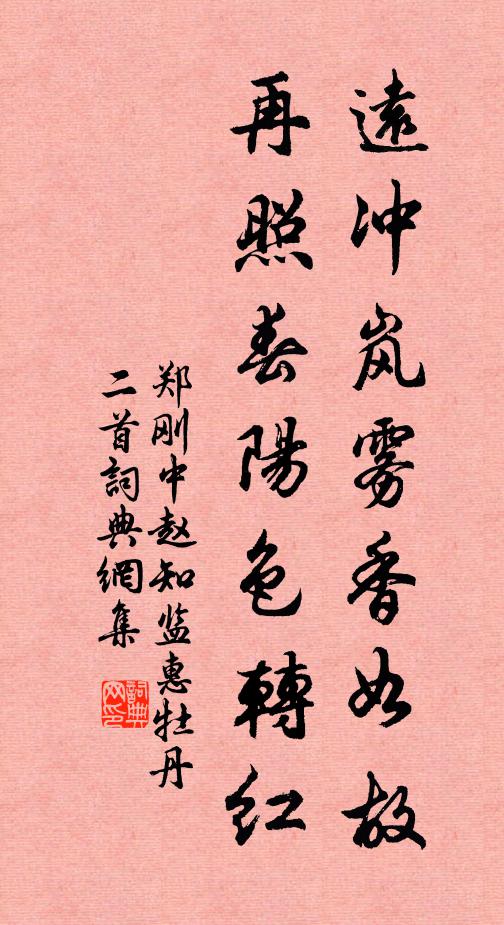 遠冲岚雾香如故
再照春陽色轉红
郑刚中赵知监惠牡丹
二首詞典網集
詞典
网印